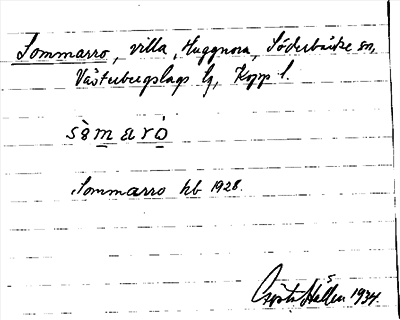 Sommarro, villa, Huggnora, Söderbärke sn,
Västerbergslags hg, Kopp l.
sàmaró
Sommarro hb 1928.
Gösta Hallén 1934.